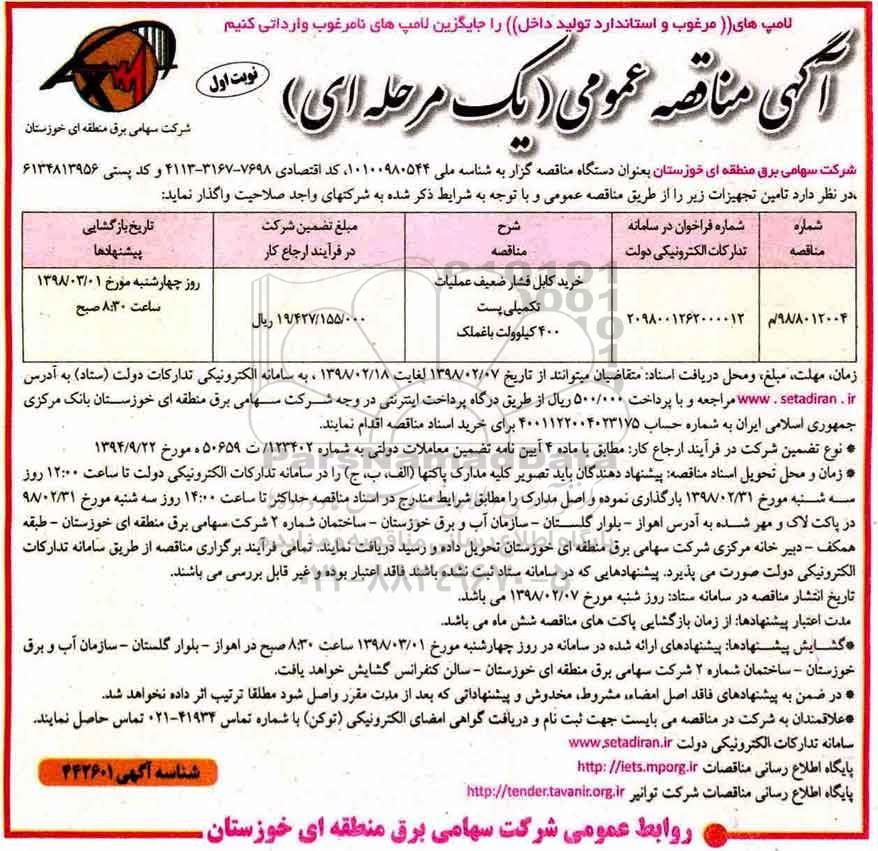 لامپ های(( مرغوب و استاندارد تولید داخل)) را جایگزین لامپ های نامرغوب وارداتی کنیم
آگهی مناقصه عمومی (یک مرحله ای)
نوبت اول
شرکت سهامی برق منطقه ای خوزستان
شرکت سهامی برق منطقه ای خوزستان بعنوان دستگاه مناقصه گزار به شناسه ملی ۱۰۱۰۰۹۸۰۵۴۴، کد اقتصادی ۷۶۹۸-۳۱۶۷-۴۱۱۳ و کد پستی ۶۱۳۴۸۱۳۹۵۶
در نظر دارد تامین تجهیزات زیر را از طریق مناقصه عمومی و با توجه به شرایط ذکر شده به شرکتهای واجد صلاحیت واگذار نماید:
شماره مناقصه
شماره فراخوان در سامانه تدارکات الکترونیکی دولت
شرح مناقصه
مبلغ تضمین شرکت در فرآیند ارجاع کار
تاریخ بازگشایی پیشنهادها
۹۸/۸۰۱۲۰۰۴/م
۲۰۹۸۰۰۱۲۶۲۰۰۰۰۱۲
خرید کابل فشار ضعیف عملیات
تکمیلی پست
۴۰۰ کیلوولت باغملک
۱۹/۴۲۷/۱۵۵/۰۰۰ ریال
روز چهارشنبه مورخ ۱۳۹۸/۰۳/۰۱
ساعت ۸:۳۰ صبح
زمان، مهلت، مبلغ، ومحل دریافت اسناد: متقاضیان میتوانند از تاریخ ۱۳۹۸/۰۲/۰۷ لغایت ۱۳۹۸/۰۲/۱۸ ، به سامانه الکترونیکی تدارکات دولت (ستاد) به آدرس
www . setadiran . ir مراجعه و با پرداخت ۵۰۰/۰۰۰ ریال از طریق درگاه پرداخت اینترنتی در وجه شرکت سهامی برق منطقه ای خوزستان بانک مرکزی
جمهوری اسلامی ایران به شماره حساب ۴۰۰۱۱۲۲۰۰۴۰۲۳۱۷۵ برای خرید اسناد مناقصه اقدام نمایند.
* نوع تضمین شرکت در فرآیند ارجاع کار: مطابق با ماده ۴ آیین نامه تضمین معاملات دولتی به شماره ۱۲۳۴۰۲/ ت ۵۰۶۵۹ ه مورخ ۱۳۹۴/۹/۲۲
* زمان و محل تحویل اسناد مناقصه: پیشنهاد دهندگان باید تصویر کلیه مدارک پاکتها (الف، ب، ج) را در سامانه تدارکات الکترونیکی دولت تا ساعت ۱۲:۰۰ روز
سه شنبه مورخ ۱۳۹۸/۰۲/۳۱ بارگذاری نموده و اصل مدارک را مطابق شرایط مندرج در اسناد مناقصه حداکثر تا ساعت ۱۴:۰۰ روز سه شنبه مورخ ۹۸/۰۲/۳۱
در پاکت لاک و مهر شده به آدرس اهواز - بلوار گلستان - سازمان آب و برق خوزستان - ساختمان شماره ۲ شرکت سهامی برق منطقه ای خوزستان - طبقه
همکف - دبیر خانه مرکزی شرکت سهامی برق منطقه ای خوزستان تحویل داده و رسید دریافت نمایند. تمامی فرآیند برگزاری مناقصه از طریق سامانه تدارکات
الکترونیکی دولت صورت می پذیرد. پیشنهادهایی که در سامانه ستاد ثبت نشده باشند فاقد اعتبار بوده و غیر قابل بررسی می باشند.
تاریخ انتشار مناقصه در سامانه ستاد: روز شنبه مورخ ۱۳۹۸/۰۲/۰۷ می باشد.
مدت اعتبار پیشنهادها: از زمان بازگشایی پاکت های مناقصه شش ماه می باشد.
*گشایش پیشنهادها: پیشنهادهای ارائه شده در سامانه در روز چهارشنبه مورخ ۱۳۹۸/۰۳/۰۱ ساعت ۸:۳۰ صبح در اهواز - بلوار گلستان - سازمان آب و برق
خوزستان - ساختمان شماره ۲ شرکت سهامی برق منطقه ای خوزستان - سالن کنفرانس گشایش خواهد یافت.
* در ضمن به پیشنهادهای فاقد اصل امضاء، مشروط، مخدوش و پیشنهاداتی که بعد از مدت مقرر واصل شود مطلقا ترتیب اثر داده نخواهد شد.
*علاقمندان به شرکت در مناقصه می بایست جهت ثبت نام و دریافت گواهی امضای الکترونیکی (توکن) با شماره تماس ۴۱۹۳۴-۰۲۱ تماس حاصل نمایند.
سامانه تدارکات الکترونیکی دولت www.setadiran.ir
پایگاه اطلاع رسانی مناقصات http: //iets.mporg.ir
پایگاه اطلاع رسانی مناقصات شرکت توانیر http://tender.tavanir.org.ir
شناسه آگهی ۴۴۲۶۰۱
روابط عمومی شرکت سهامی برق منطقه ای خوزستان
ParsNamadData
پایگاه اطلاع رسانی مناقصه و مزایده
۰۲۱-۸۸۳۴۹۶۷۰-۵